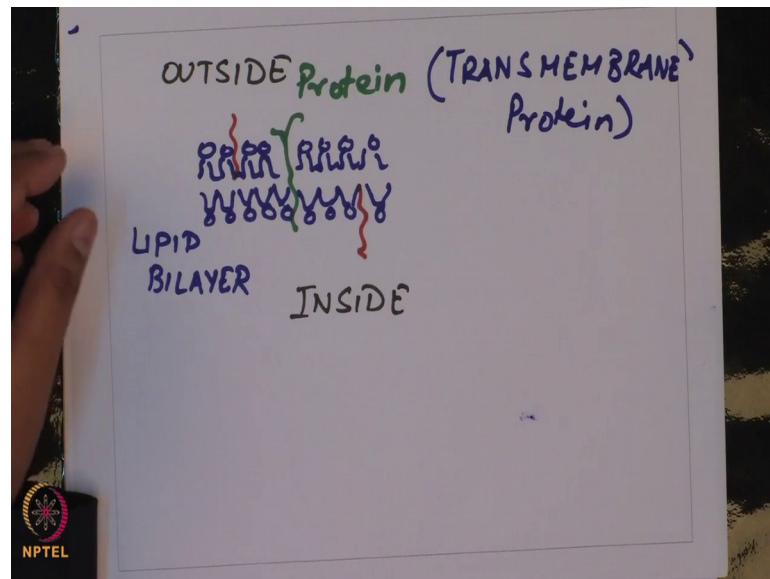 OUTSIDE Protein (TRANSMEMBRANE
Protein)
LIPID
BILAYER
INSIDE
NPTEL